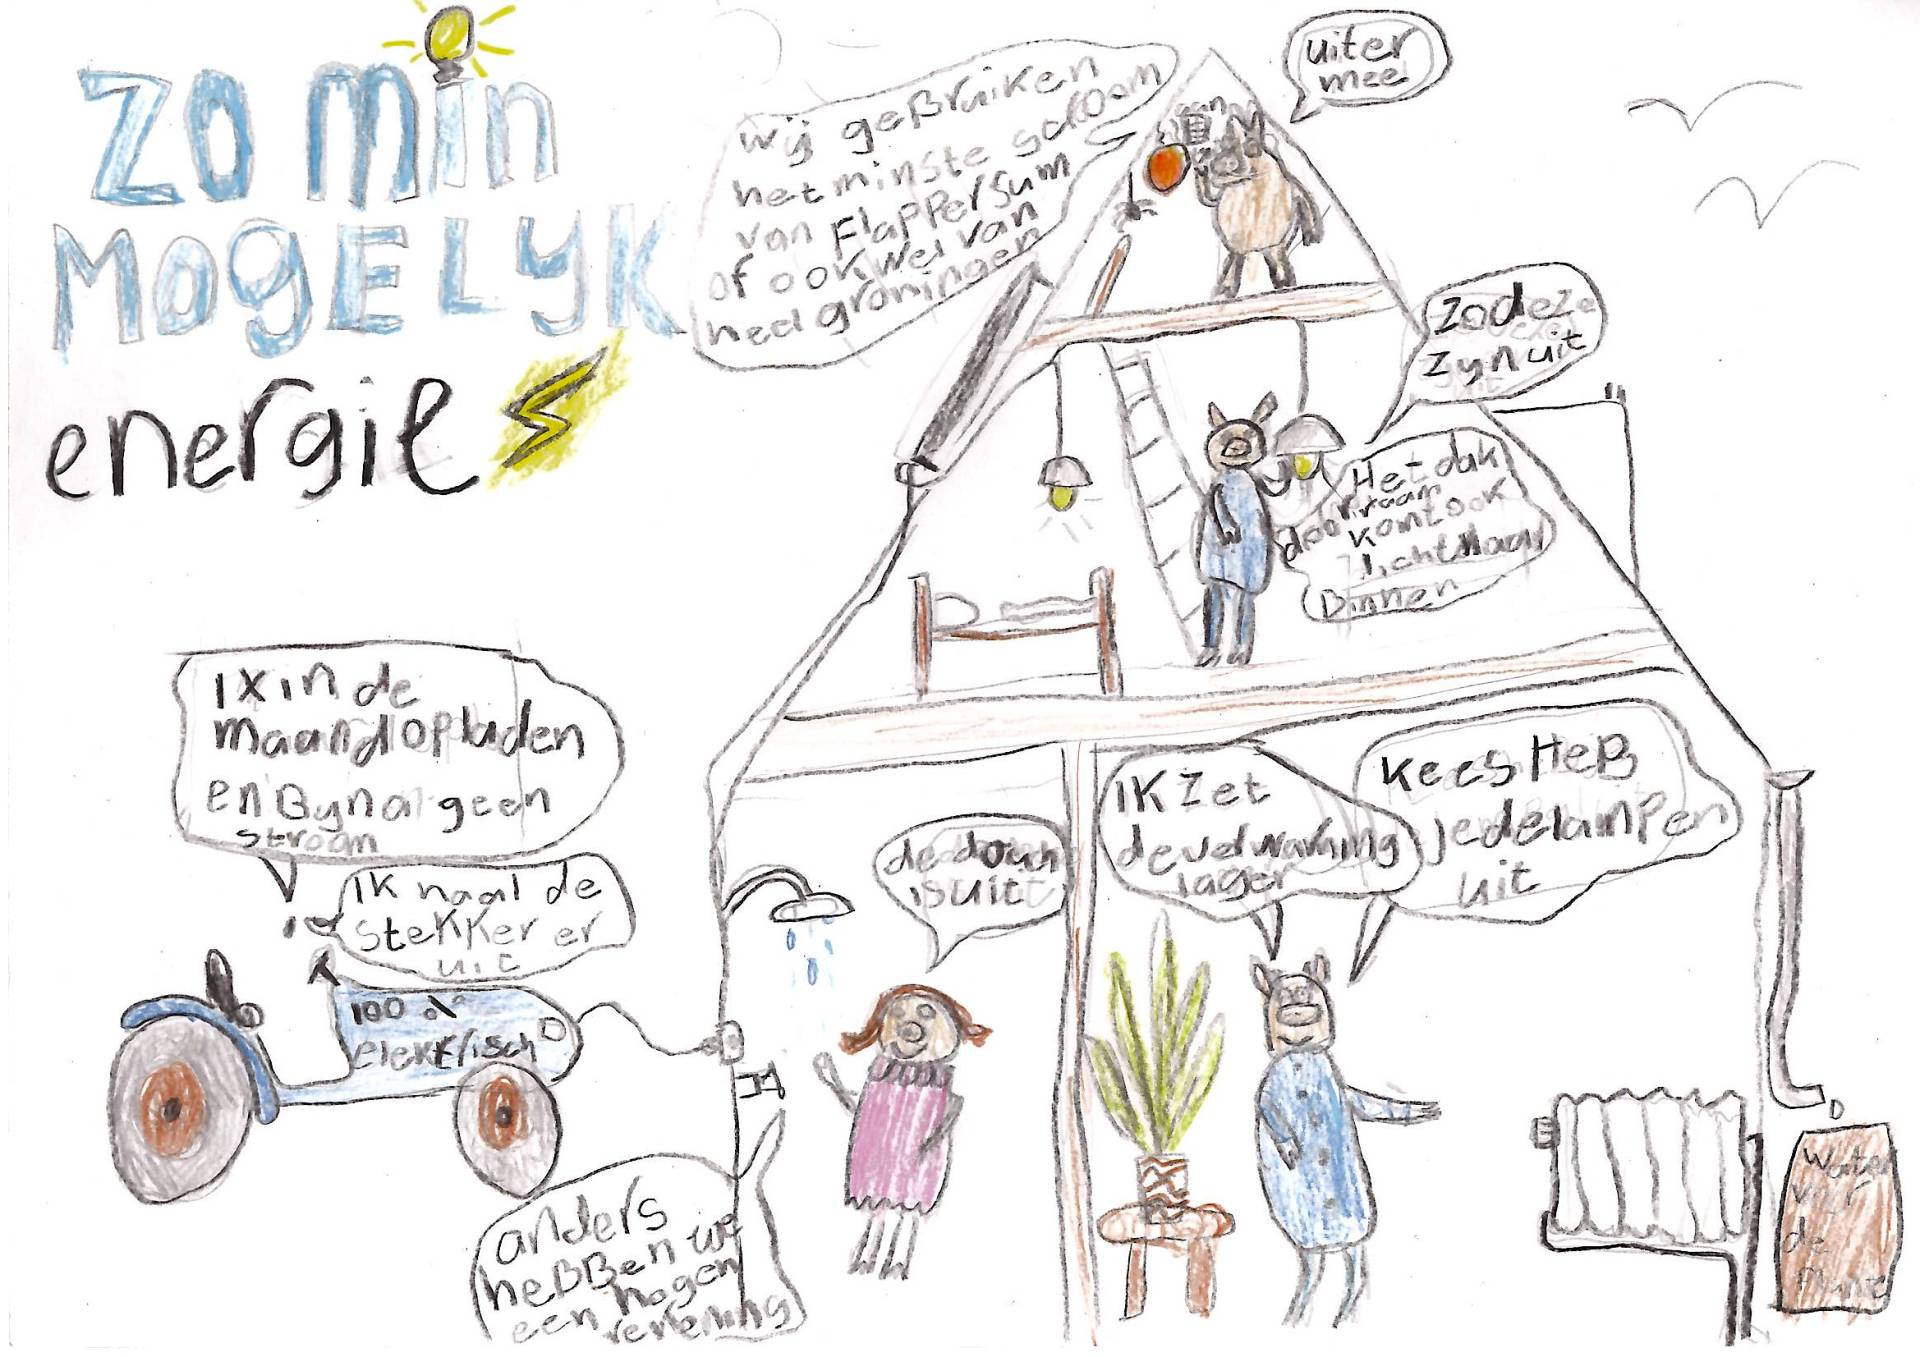 Zo min
MOgELyK
energie
wij geBruiken
het minste stroom
van FlapperSum
of ook wel van
heel groningen
uiter
mee
zo deze
zyn uit
Het dak
raam
door
komt ook
licht naar
Binnen
1x in de
maand opladen
en Byna geen
stroom
IK haal de
steKKer er
uit
100 %
Elektrisch
de douch
is uit
IK zet
de verwarming
lager
Kees HeB
je de lampen
uit
anders
heBBen we
een hogen
rekening
water
voor
de